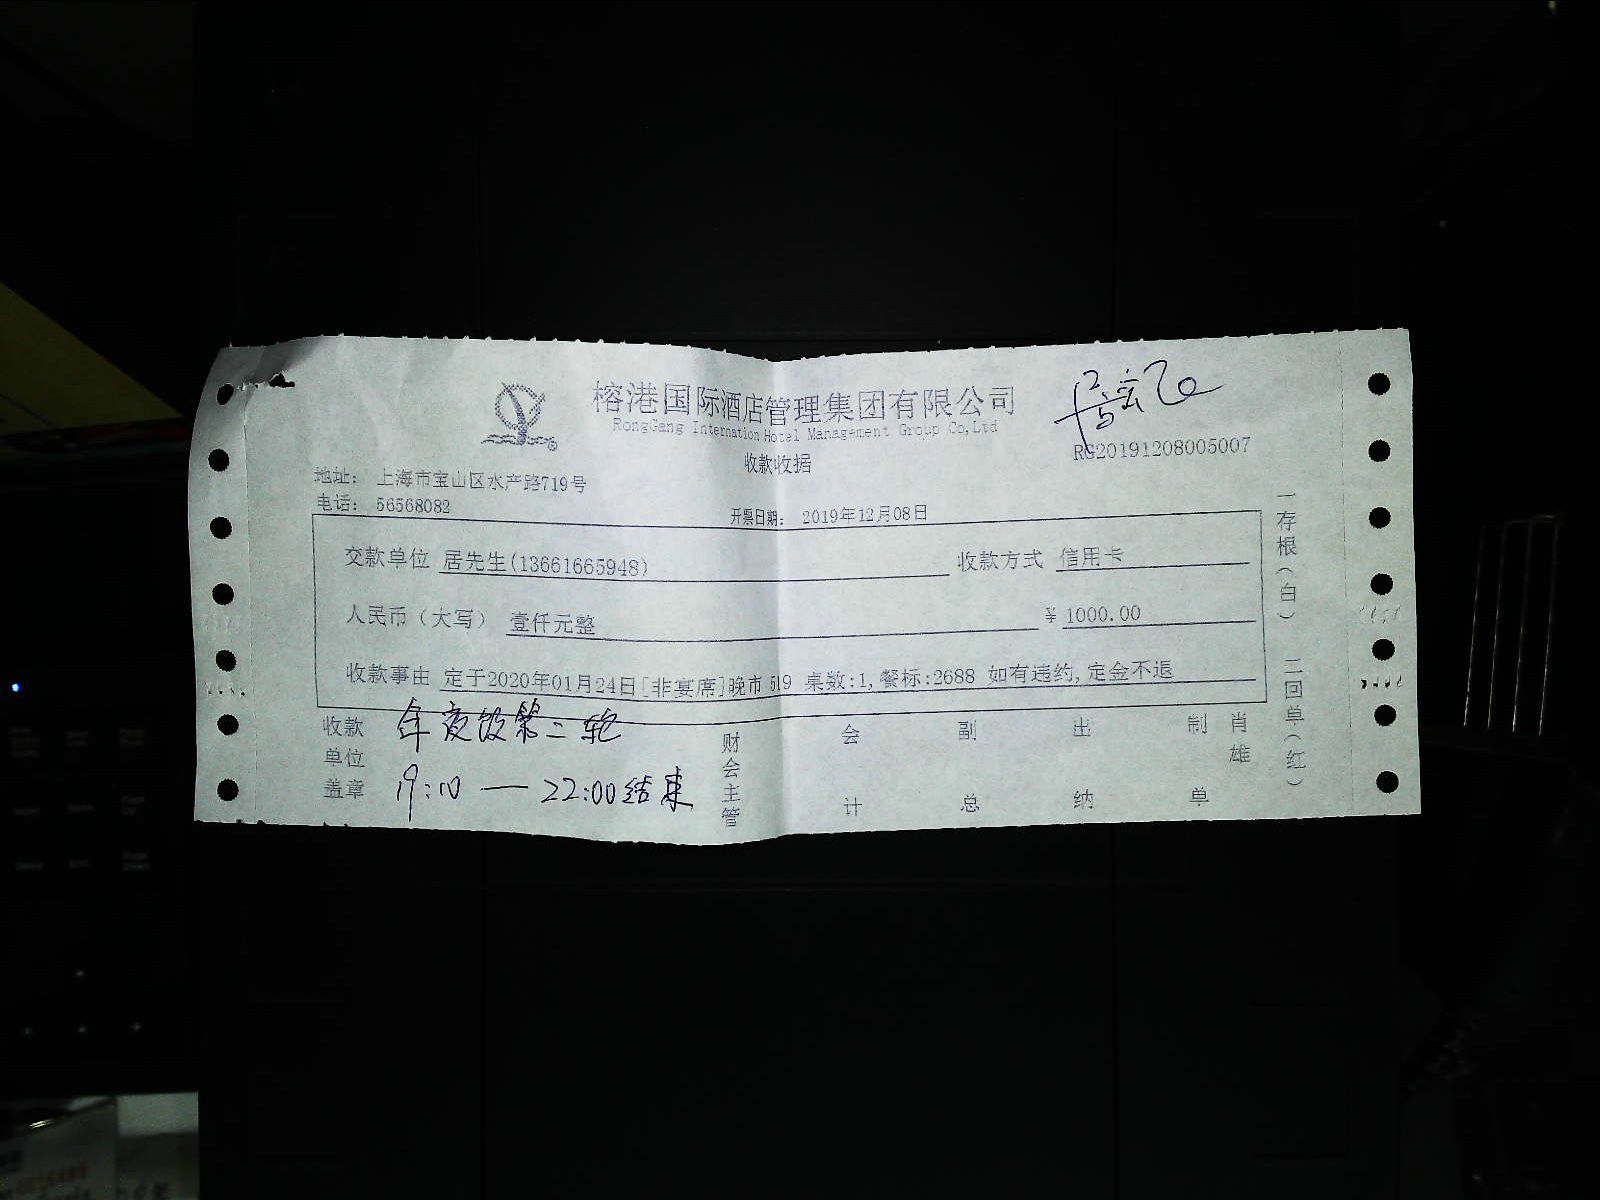 榕港国际酒店管理集团有限公司
RongGang Internation Hotel Management Group Co,Ltd
收款收据
RG20191208005007
地址： 上海市宝山区水产路719号
电话： 56568082
开票日期： 2019年12月08日
交款单位 居先生(13661665948) 收款方式 信用卡
人民币（大写） 壹仟元整 ¥ 1000.00
收款事由 定于2020年01月24日[非宴席]晚市 519 桌数:1,餐标:2688 如有违约,定金不退
收款单位盖章
年夜饭第二轮
19:10 — 22:00结束
财会主管
会计
副总
出纳
制单
肖雄
一存根（白） 二回单（红）